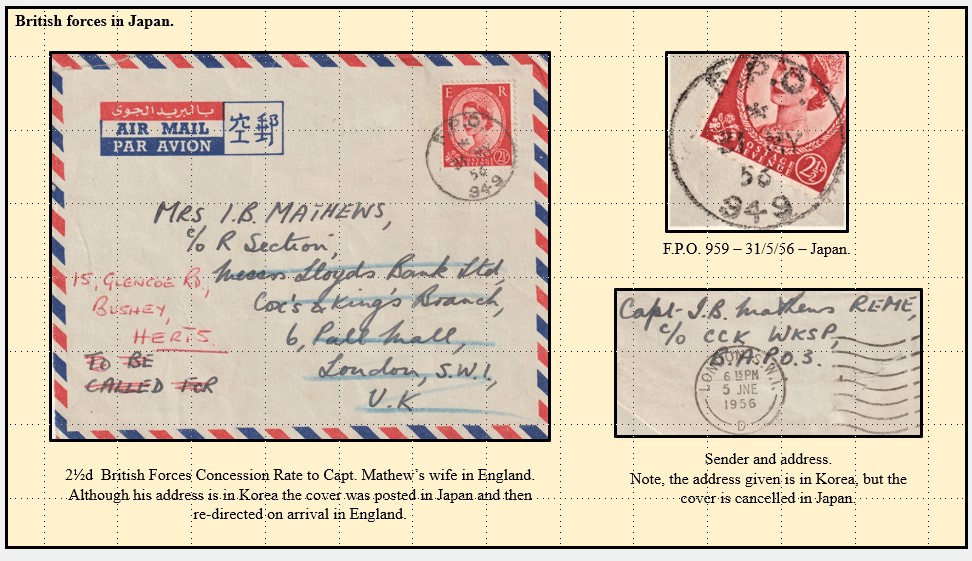 British forces in Japan.
بالبريد الجوى
AIR MAIL
PAR AVION
空郵
E R
POSTAGE REVENGE
2½D
F.P.O.
*
31 MY
56
949
MRS I.B. MATHEWS,
c/o R Section,
Messrs Lloyds Bank Ltd,
Cox's & King's Branch,
6, Pall Mall,
London, S.W.1,
U.K
15, GLENCOE RD.,
BUSHEY,
HERTS.
TO BE
CALLED FOR
2½d British Forces Concession Rate to Capt. Mathew's wife in England.
Although his address is in Korea the cover was posted in Japan and then
re-directed on arrival in England.
F.P.O.
*
31 MY
56
949
POSTAGE
REVENUE
2½D
F.P.O. 959 – 31/5/56 – Japan.
Capt. I.B. Mathews REME,
c/o CCK WKSP,
B.A.P.O.3.
LONDON S.W.1.
6 15 PM
5 JNE
1956
D
Sender and address.
Note, the address given is in Korea, but the
cover is cancelled in Japan.